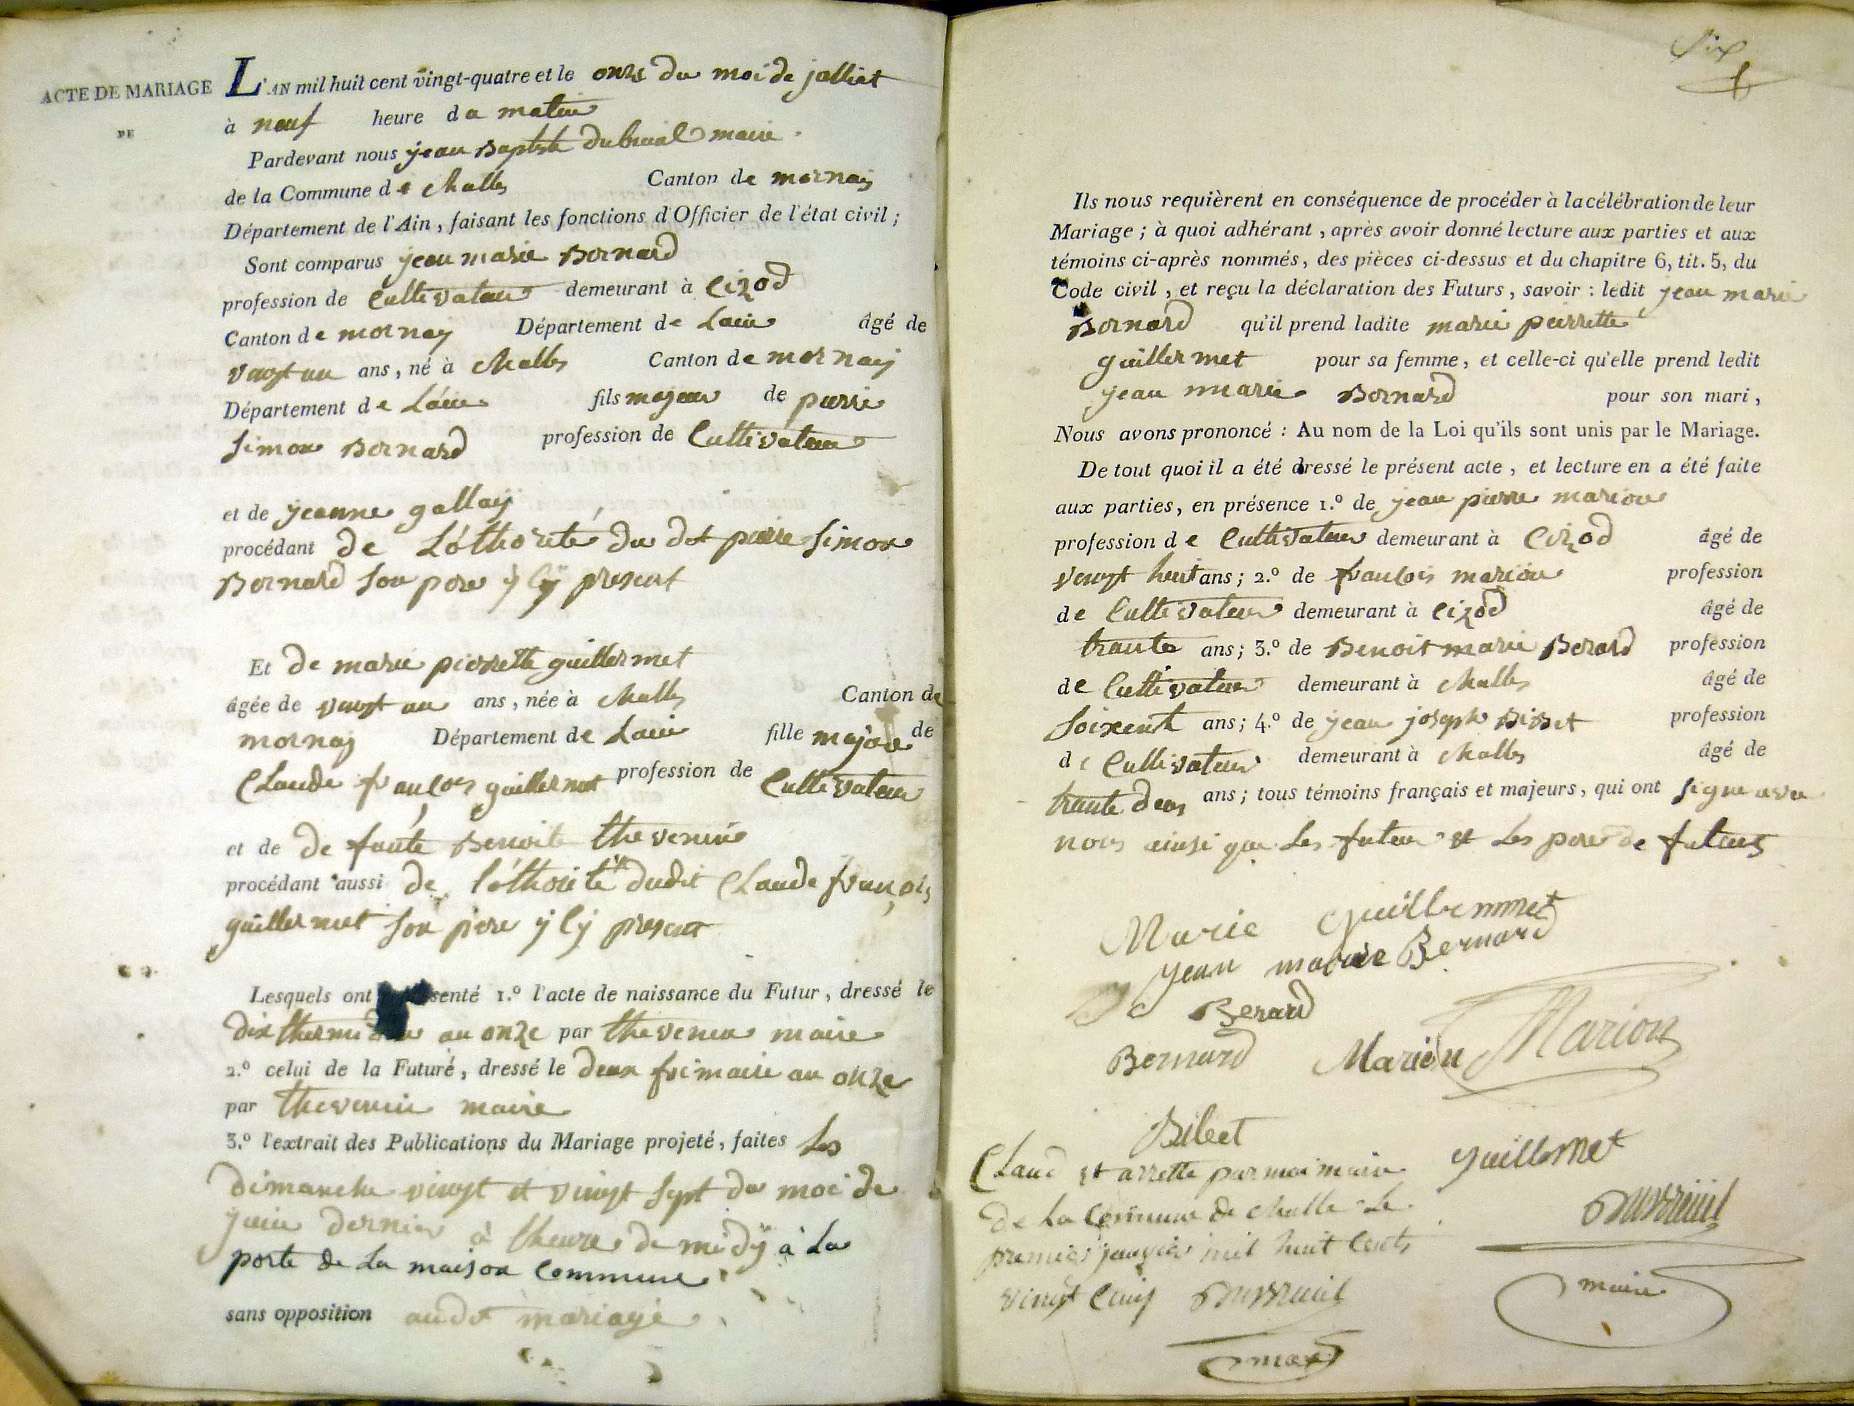 ACTE DE MARIAGE
DE
L'AN mil huit cent vingt-quatre et le onze du moi de jolliet
à neuf heure da matin
Pardevant nous jean Baptiste dubruail maire
de la Commune de Challes Canton de mornay
Département de l'Ain, faisant les fonctions d'Officier de l'état civil;
Sont comparus jean marie Bernard
profession de Cultivateur demeurant à Cizod
Canton de mornay Département de Lain âgé de
vingt un ans, né à Challes Canton de mornay
Département de Lain fils majeur de pierre
simon Bernard profession de Cultivateur
et de jeanne gallay
procédant de L'othorité du dit pierre Simon
Bernard son pere y ly present
Et de marie pierrette guillermet
âgée de vingt un ans, née à Challes Canton de
mornay Département de Lain fille majore de
Claude françois guillermet profession de Cultivateur
et de de faute Benoite thevenin
procédant aussi de l'othorité dudit Claude françois
guillermet son pere y ly present
Lesquels ont senté 1.º l'acte de naissance du Futur, dressé le
dix thermidor an onze par thevenin maire
2.º celui de la Future, dressé le deux frimaire an onze
par thevenin maire
3.º l'extrait des Publications du Mariage projeté, faites les
dimanche vingt et vingt sept du moi de
juin dernier à lheure de midÿ à la
porte de la maison Commune
sans opposition audit mariage
Six
Ils nous requièrent en conséquence de procéder à la célébration de leur
Mariage; à quoi adhérant, après avoir donné lecture aux parties et aux
témoins ci-après nommés, des pièces ci-dessus et du chapitre 6, tit. 5, du
Code civil, et reçu la déclaration des Futurs, savoir: ledit jean marie
Bernard qu'il prend ladite marie pierrette
guillermet pour sa femme, et celle-ci qu'elle prend ledit
jean marie Bernard pour son mari,
Nous avons prononcé: Au nom de la Loi qu'ils sont unis par le Mariage.
De tout quoi il a été dressé le présent acte, et lecture en a été faite
aux parties, en présence 1.º de jean pierre marion
profession de Cultivateur demeurant à Cizod âgé de
vingt huit ans; 2.º de françois marion profession
de Cultivateur demeurant à Cizod âgé de
trante ans; 3.º de Benoit marie Berard profession
de Cultivateur demeurant à Challes âgé de
soixent ans; 4.º de jean joseph Bibet profession
de Cultivateur demeurant à Challes âgé de
trante deux ans; tous témoins français et majeurs, qui ont signe avec
nous ainsi que les futeur et les pere de futeurs
Marie Guillermmet
jean marie Bernard
Berard
Bernard Marion Marion
Bibet
Guillermet
Claud et arrette par moi maire
de la Commune de Challe le
premier janvier mil huit Cents
vingt Cinq Dubruail
maire
Dubruail
maire